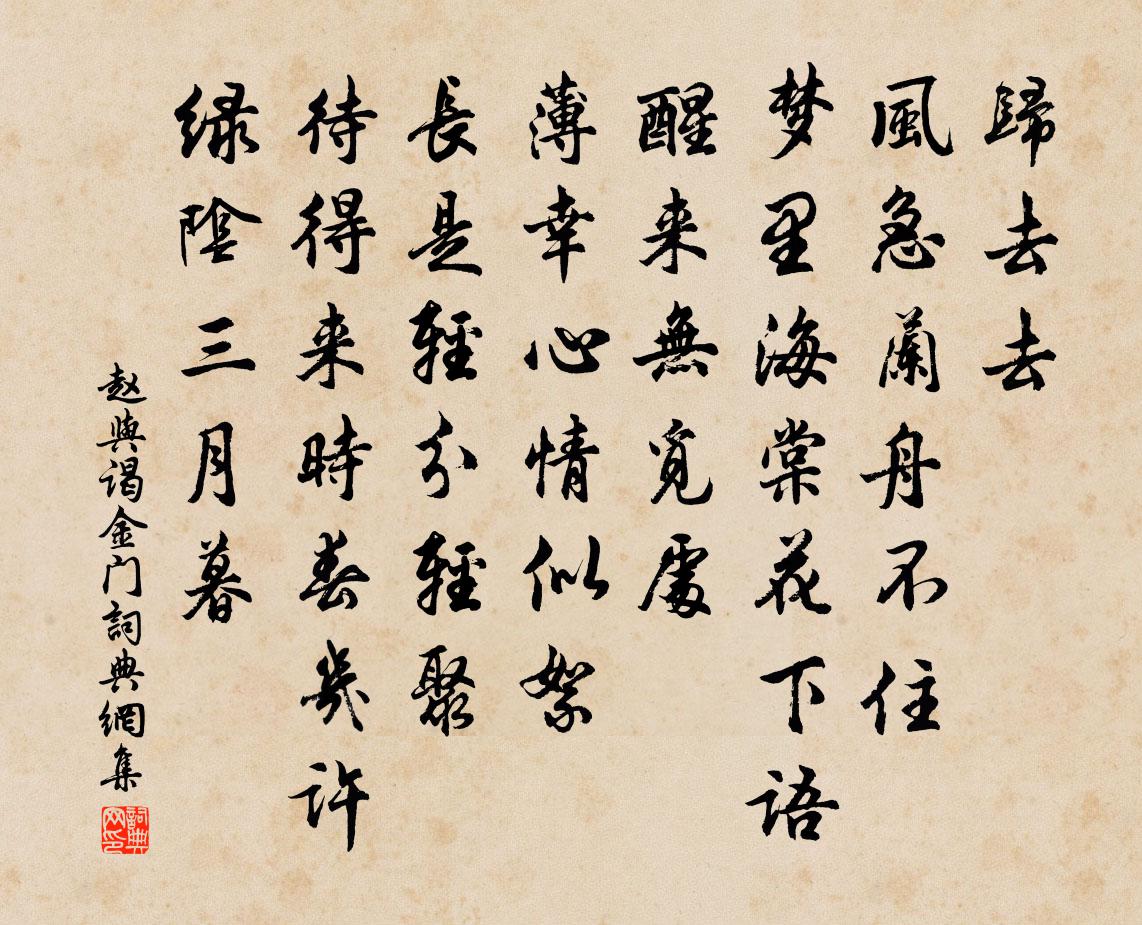 歸去去
風急蘭舟不住
梦里海棠花下語
醒来無覓處
薄幸心情似絮
長是輕分輕聚
待得来時春幾許
緑陰三月暮
赵與谒金门詞典網集
詞典网印